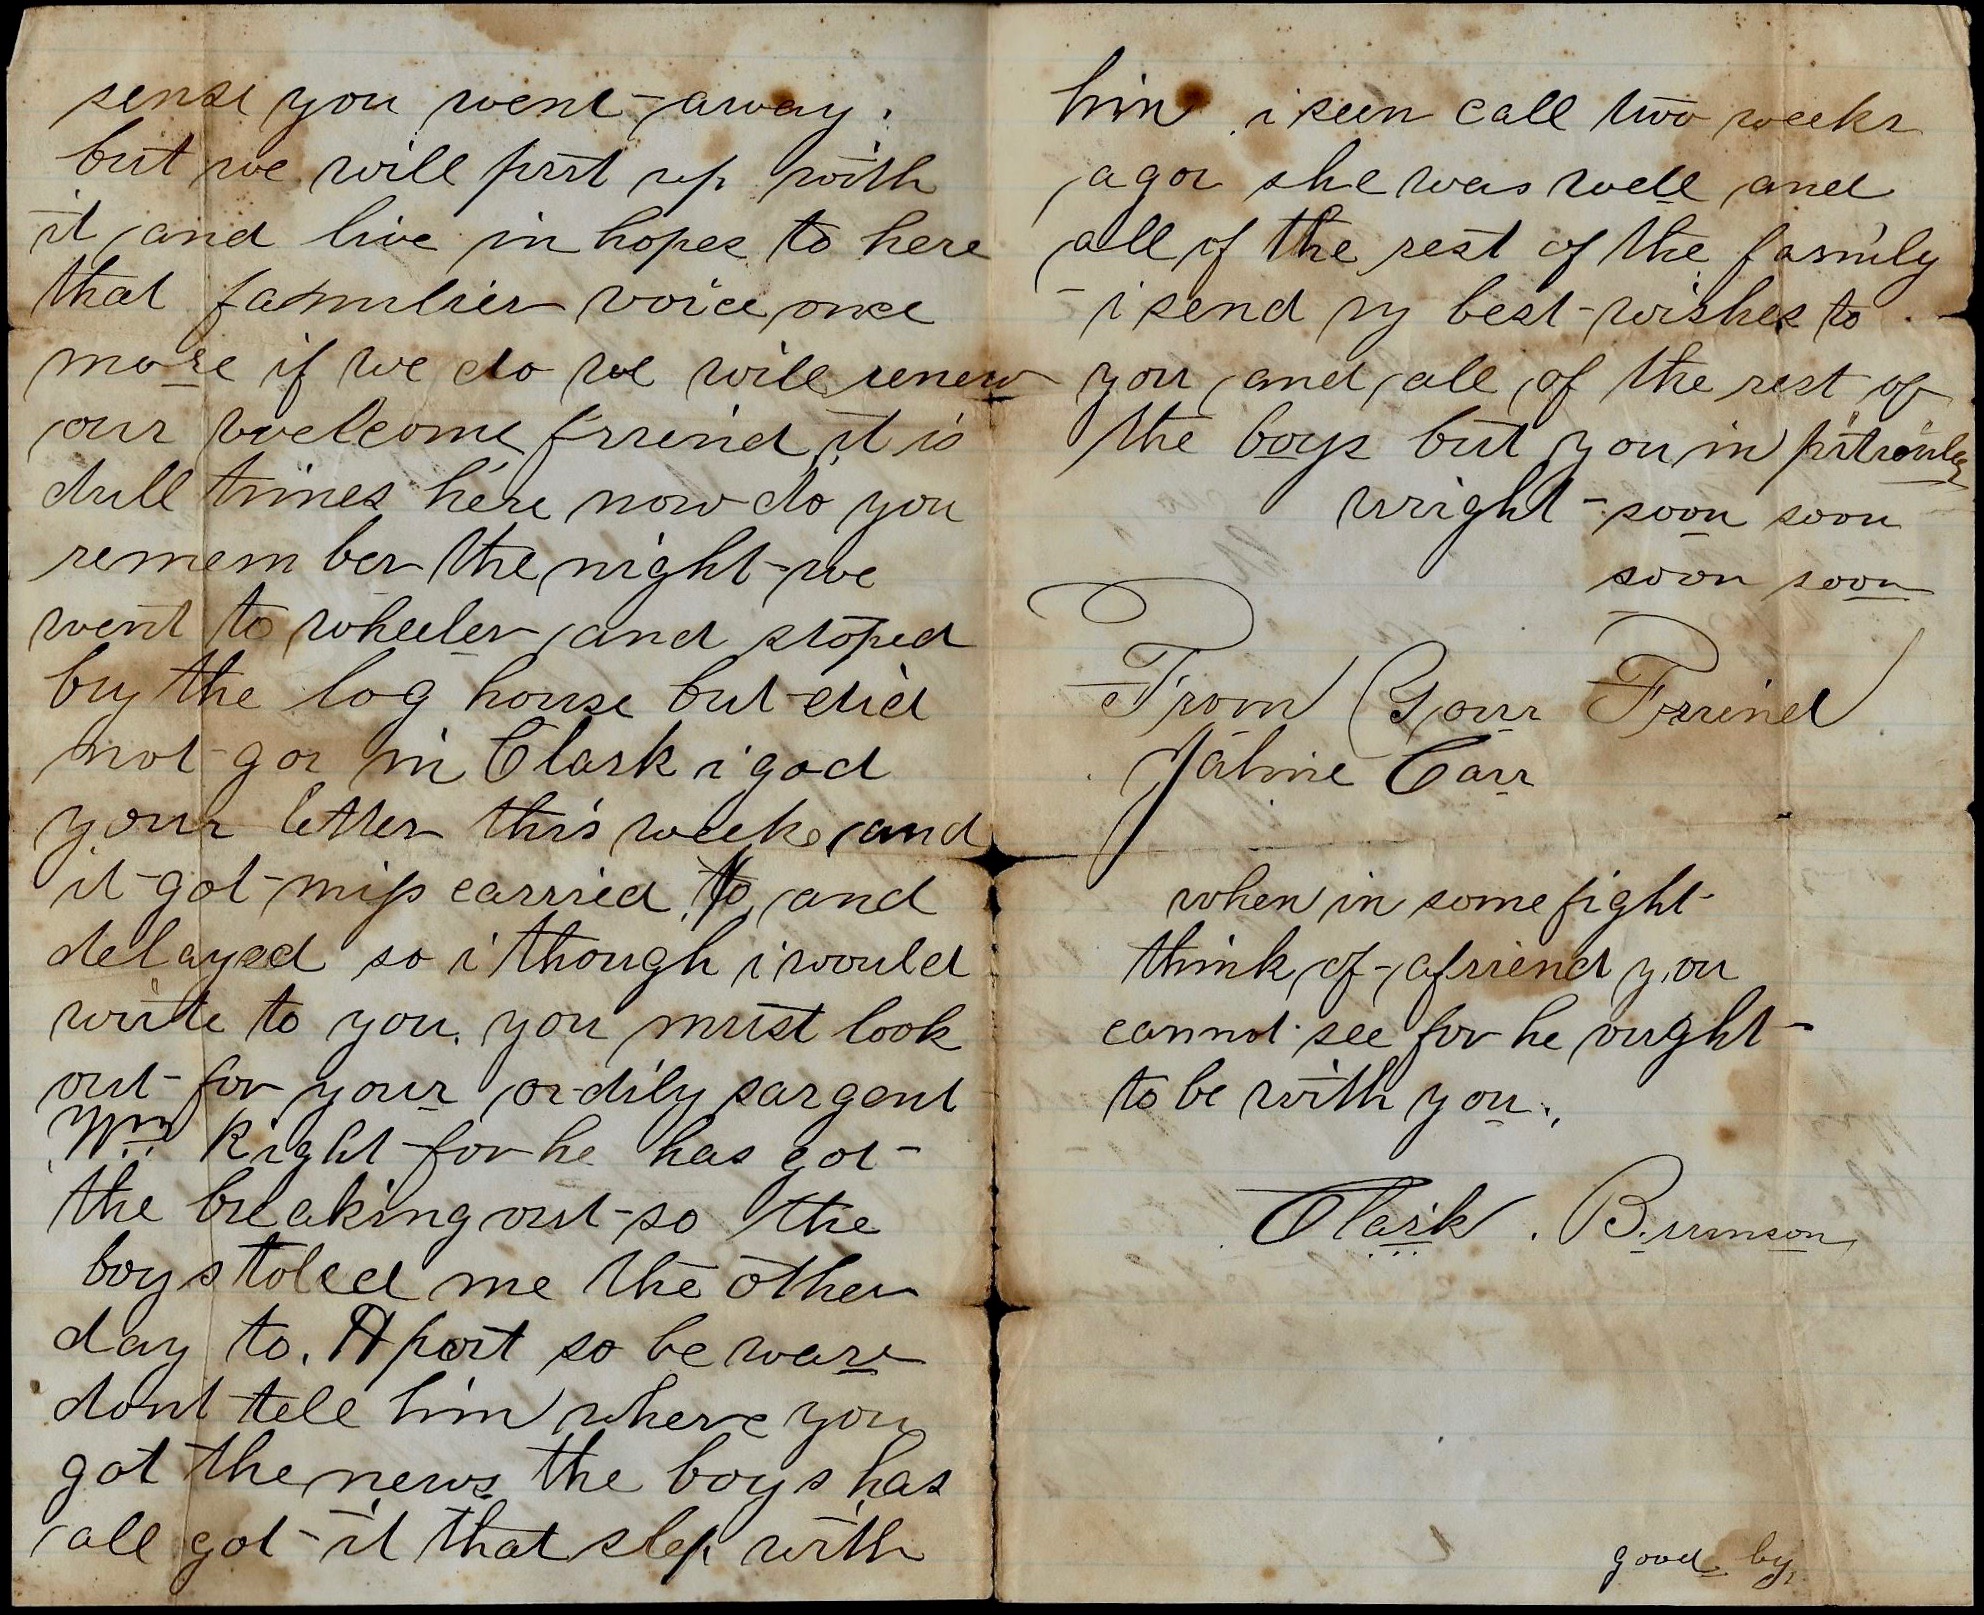 sense you went away.
but we will put up with
it and live in hopes to here
that familier voice once
more if we do we will renew
our welcome frriend it is
dull times here now do you
remem ber the night we
went to wheeler and stoped
by the log house but did
not go in Clark i god
your letter this week and
it got miss carried to and
delayed so i though i would
write to you. you must look
out for your or dily sargent
Wm Right for he has got
the breaking out so the
boys toled me the other
day to. Apart so be ware
dont tell him where you
got the news the boys has
all got it that slep with
him i seen call two weeks
ago she was well and
all of the rest of the family
i send my best wishes to
you and all of the rest of
the boys but you in
wright soon soon
soon soon
From Your Frriend
Carr
when in some fight
think of a friend you
cannot see for he ought
to be with you.
Clark. Brunson
good by